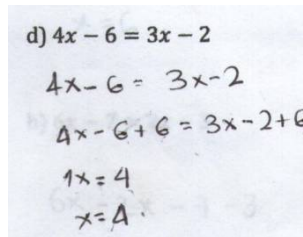 d) 4x – 6 = 3x – 2
4x - 6 = 3x - 2
4x - 6 + 6 = 3x - 2 + 6
1x = 4
x = 4